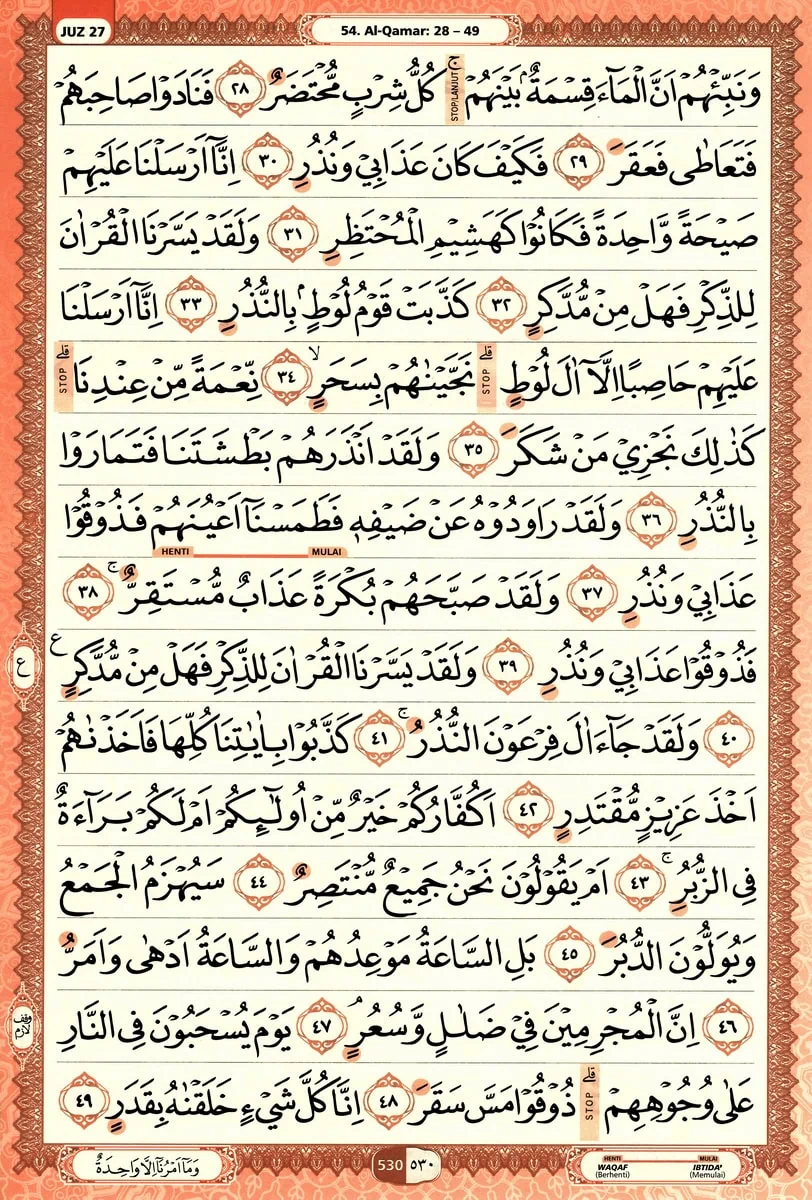 JUZ 27
54. Al-Qamar: 28 – 49
وَنَبِّئْهُمْ اَنَّ الْمَاۤءَ قِسْمَةٌ ۢ بَيْنَهُمْ ۚ كُلُّ شِرْبٍ مُّحْتَضَرٌ ٢٨ فَنَادَوْا صَاحِبَهُمْ
STOP/LANJUT
فَتَعَاطٰى فَعَقَرَ ٢٩ فَكَيْفَ كَانَ عَذَابِيْ وَنُذُرِ ٣٠ اِنَّآ اَرْسَلْنَا عَلَيْهِمْ
صَيْحَةً وَّاحِدَةً فَكَانُوْا كَهَشِيْمِ الْمُحْتَظِرِ ٣١ وَلَقَدْ يَسَّرْنَا الْقُرْاٰنَ
لِلذِّكْرِ فَهَلْ مِنْ مُّدَّكِرٍ ٣٢ كَذَّبَتْ قَوْمُ لُوْطٍ ۢ بِالنُّذُرِ ٣٣ اِنَّآ اَرْسَلْنَا
عَلَيْهِمْ حَاصِبًا اِلَّآ اٰلَ لُوْطٍ ۗ نَجَّيْنٰهُمْ بِسَحَرٍ ۙ ٣٤ نِّعْمَةً مِّنْ عِنْدِنَا ۗ
STOP STOP
كَذٰلِكَ نَجْزِيْ مَنْ شَكَرَ ٣٥ وَلَقَدْ اَنْذَرَهُمْ بَطْشَتَنَا فَتَمَارَوْا
بِالنُّذُرِ ٣٦ وَلَقَدْ رَاوَدُوْهُ عَنْ ضَيْفِهٖ فَطَمَسْنَآ اَعْيُنَهُمْ فَذُوْقُوْا
HENTI MULAI
عَذَابِيْ وَنُذُرِ ٣٧ وَلَقَدْ صَبَّحَهُمْ بُكْرَةً عَذَابٌ مُّسْتَقِرٌّ ۚ ٣٨
فَذُوْقُوْا عَذَابِيْ وَنُذُرِ ٣٩ وَلَقَدْ يَسَّرْنَا الْقُرْاٰنَ لِلذِّكْرِ فَهَلْ مِنْ مُّدَّكِرٍ ع
ع
٤٠ وَلَقَدْ جَاۤءَ اٰلَ فِرْعَوْنَ النُّذُرُ ۚ ٤١ كَذَّبُوْا بِاٰيٰتِنَا كُلِّهَا فَاَخَذْنٰهُمْ
اَخْذَ عَزِيْزٍ مُّقْتَدِرٍ ٤٢ اَكُفَّارُكُمْ خَيْرٌ مِّنْ اُولٰۤىِٕكُمْ اَمْ لَكُمْ بَرَاۤءَةٌ
فِى الزُّبُرِ ۚ ٤٣ اَمْ يَقُوْلُوْنَ نَحْنُ جَمِيْعٌ مُّنْتَصِرٌ ٤٤ سَيُهْزَمُ الْجَمْعُ
وَيُوَلُّوْنَ الدُّبُرَ ٤٥ بَلِ السَّاعَةُ مَوْعِدُهُمْ وَالسَّاعَةُ اَدْهٰى وَاَمَرُّ
٤٦ اِنَّ الْمُجْرِمِيْنَ فِيْ ضَلٰلٍ وَّسُعُرٍ ۘ ٤٧ يَوْمَ يُسْحَبُوْنَ فِى النَّارِ
وقف لازم
عَلٰى وُجُوْهِهِمْ ۗ ذُوْقُوْا مَسَّ سَقَرَ ٤٨ اِنَّا كُلَّ شَيْءٍ خَلَقْنٰهُ بِقَدَرٍ ٤٩
STOP
وَمَآ اَمْرُنَآ اِلَّا وَاحِدَةٌ
530 ٥٣٠
HENTI MULAI
WAQAF IBTIDA'
(Berhenti) (Memulai)